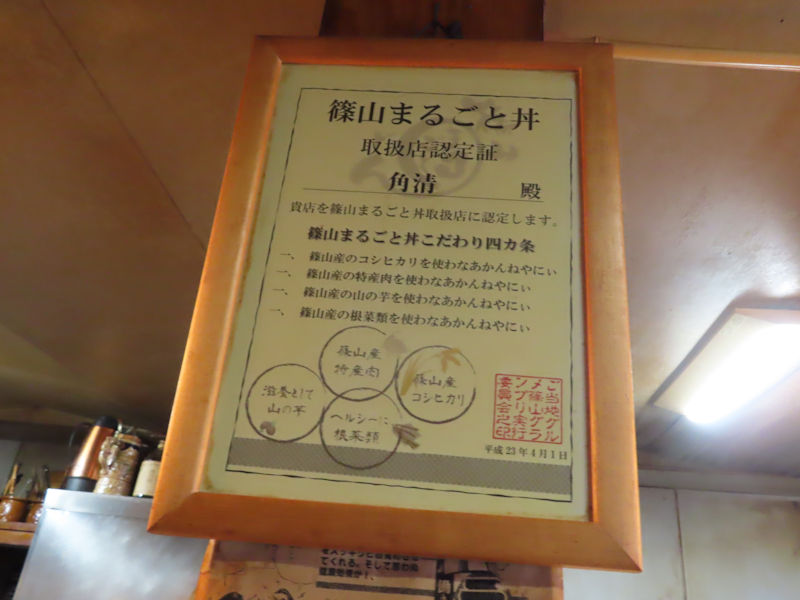 篠山まるごと丼
取扱店認定証
角清 殿
貴店を篠山まるごと丼取扱店に認定します。
篠山まるごと丼こだわり四カ条
一、 篠山産のコシヒカリを使わなあかんねやにぃ
一、 篠山産の特産肉を使わなあかんねやにぃ
一、 篠山産の山の芋を使わなあかんねやにぃ
一、 篠山産の根菜類を使わなあかんねやにぃ
篠山産
特産肉
篠山産
コシヒカリ
滋養として
山の芋
ヘルシーに
根菜類
ご当地グル
メ篠山グラ
ンプリ実行
委員会之印
平成23年4月1日
てくれる。そして思わぬ